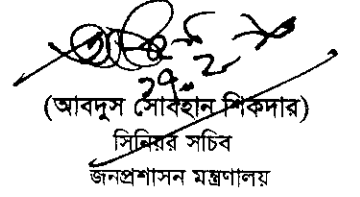 ২৭.২
(আবদুস সোবহান শিকদার)
সিনিয়র সচিব
জনপ্রশাসন মন্ত্রণালয়